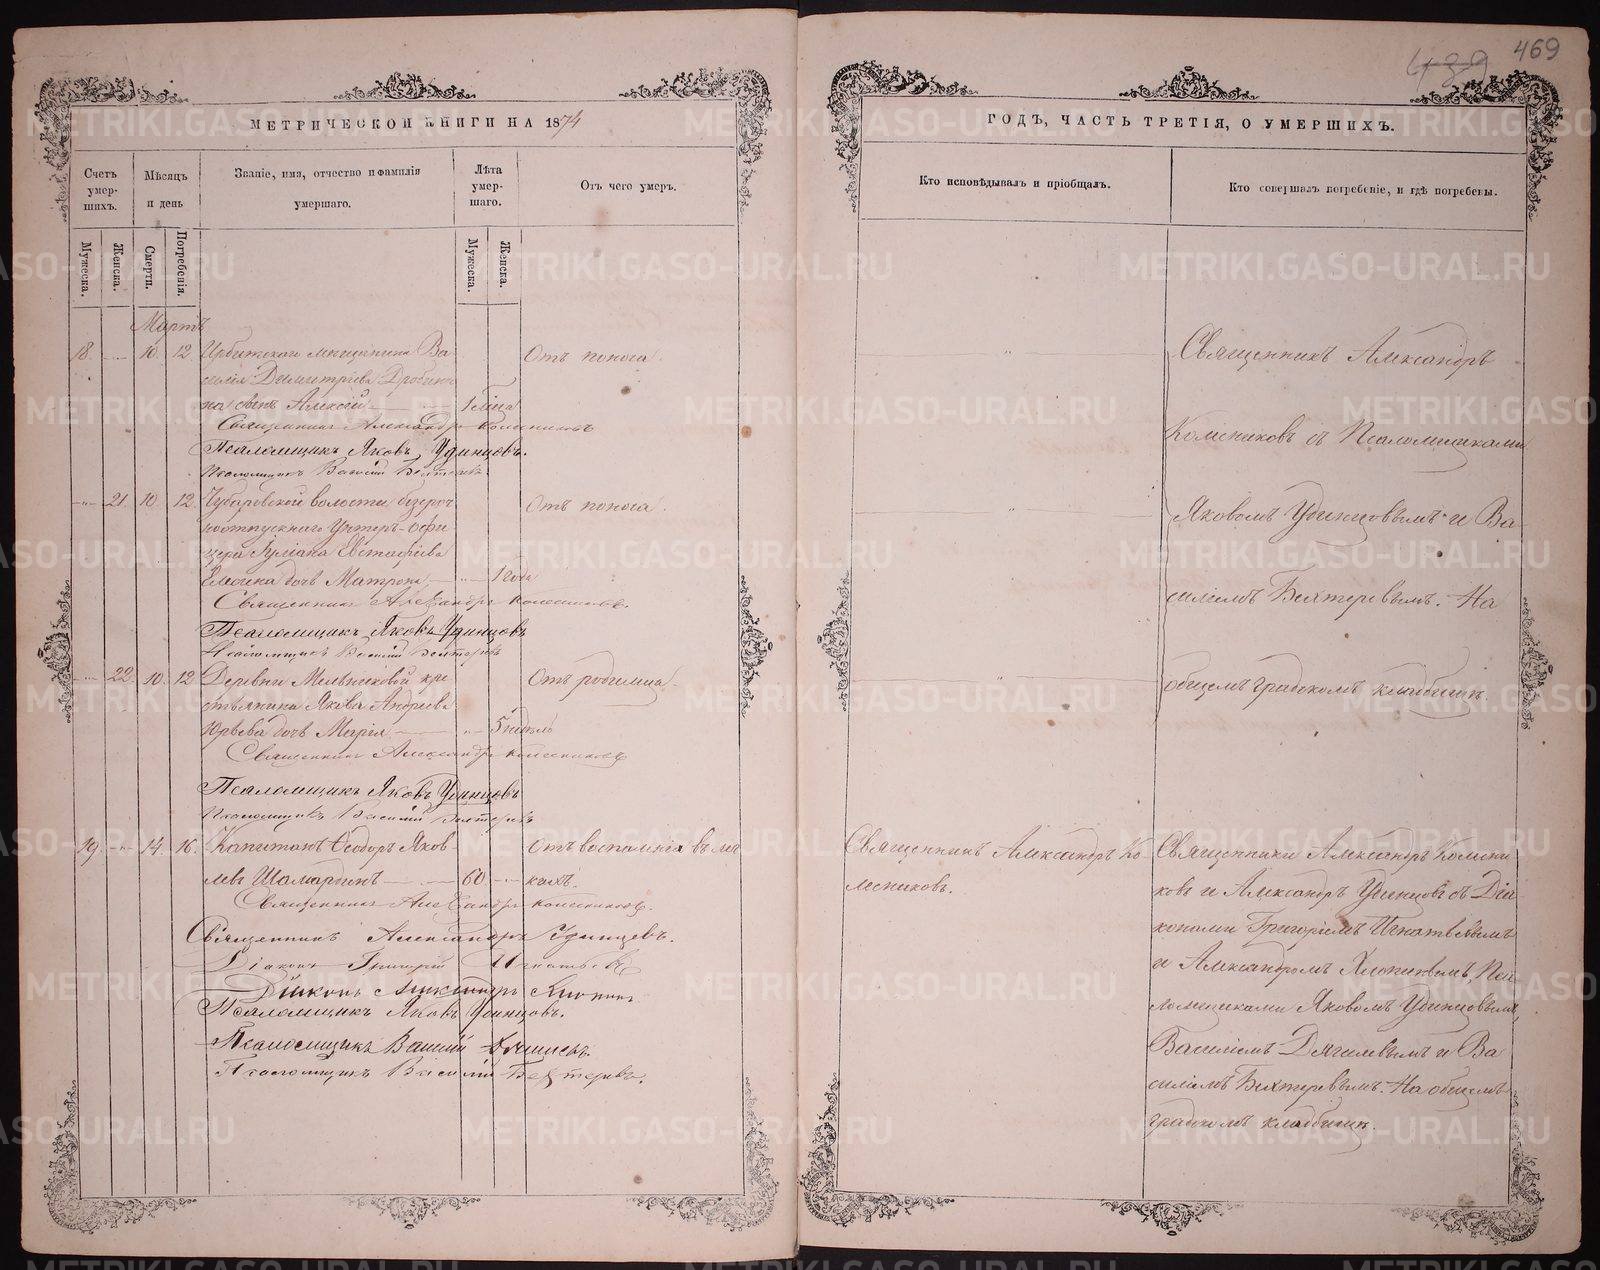 469
489
МЕТРИЧЕСКОЙ КНИГИ НА 1874
Счетъ умер-шихъ.
Мѣсяцъ и день
Званіе, имя, отчество и фамилія умершаго.
Лѣта умер-шаго.
Отъ чего умеръ.
Мужеска.
Женска.
Смерти.
Погребенія.
Мужеска.
Женска.
Мартъ
18. 10. 12. Ирбитскаго мещанина Ва-
силія Димитріева
сынъ Алексій 1 Отъ поноса.
Священникъ Александръ Колесниковъ
Псаломщикъ Яковъ Удинцовъ.
Псаломщикъ Василій Бехтеревъ
21. 10. 12. Чубаровской волости безсроч
ноотпускнаго Унтеръ-Офи
цера Іуліана Евстафіева
дочь Матрона 1 года Отъ поноса.
Священникъ Александръ Колесниковъ.
Псаломщикъ Яковъ Удинцовъ
Псаломщикъ Василій Бехтеревъ
22. 10. 12. Деревни Мельниковой кре
стьянина Якова Андреева
Юрьева дочь Марія 5 недѣль Отъ родимца
Священникъ Александръ Колесниковъ
Псаломщикъ Яковъ Удинцовъ
Псаломщикъ Василій Бехтеревъ
19. 14. 16. Капитанъ Ѳеодоръ Яков-
левъ 60 Отъ воспаленія въ лег
кихъ.
Священникъ Александръ Колесниковъ.
Священникъ Александръ Удинцевъ.
Діаконъ Григорій Игнатьевъ
Діаконъ Александръ
Псаломщикъ Яковъ Удинцовъ.
Псаломщикъ Василій
Псаломщикъ Василій Бехтеревъ.
ГОДЪ, ЧАСТЬ ТРЕТІЯ, О УМЕРШИХЪ.
Кто исповѣдывалъ и пріобщалъ.
Кто совершалъ погребеніе, и гдѣ погребены.
Священникъ Александръ
Колесниковъ съ Псаломщиками
Яковомъ Удинцовымъ и Ва-
силіемъ Бехтеревымъ. На
общемъ градскомъ кладбищѣ.
Священникъ Александръ Ко-
лесниковъ.
Священники Александръ Колесни-
ковъ и Александръ Удинцовъ съ Діа-
конами Григоріемъ Игнатьевымъ
и Александромъ Пса-
ломщиками Яковомъ Удинцовымъ,
Василіемъ Дягилевымъ и Ва
силіемъ Бехтеревымъ. На общемъ
градскомъ кладбищѣ.
METRIKI.GASO-URAL.RU